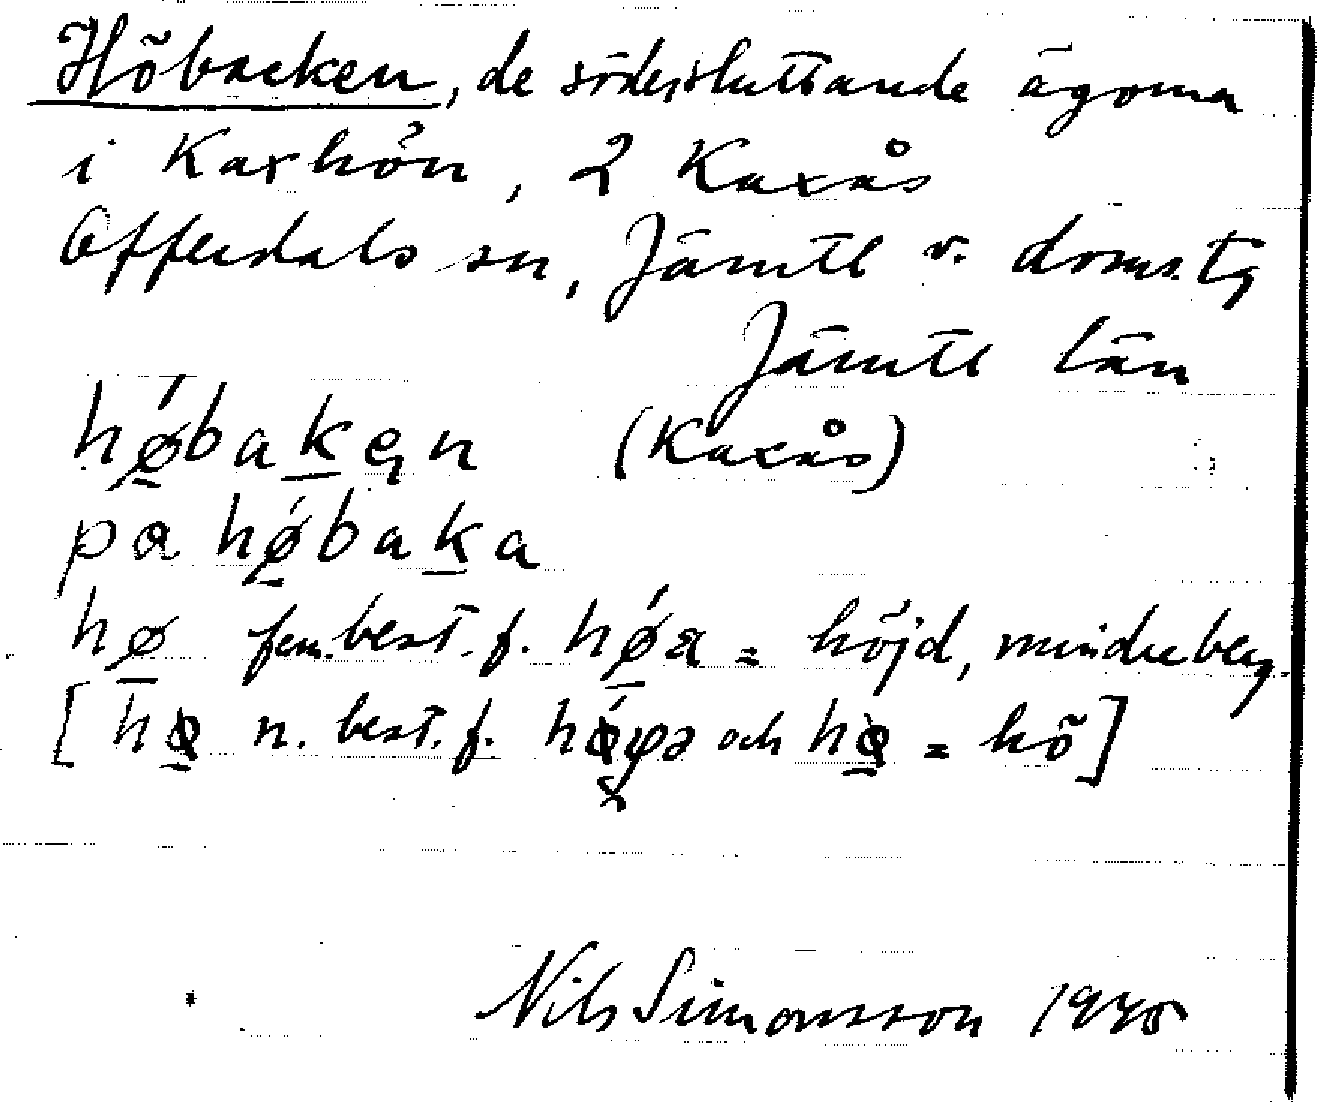 Höbacken, de södersluttande ägorna
i Kaxhön, 2 Kaxås
Offerdals sn, Jämtl v. doms. tg
Jämtl län
hǿ̱baḵęn (Kaxås)
pa hǿ̱baḵa
hø̱ fem. best. f. hǿ̱a = höjd, mindre berg.
[ n. best. f. och = hö]
Nils Simonsson 1935